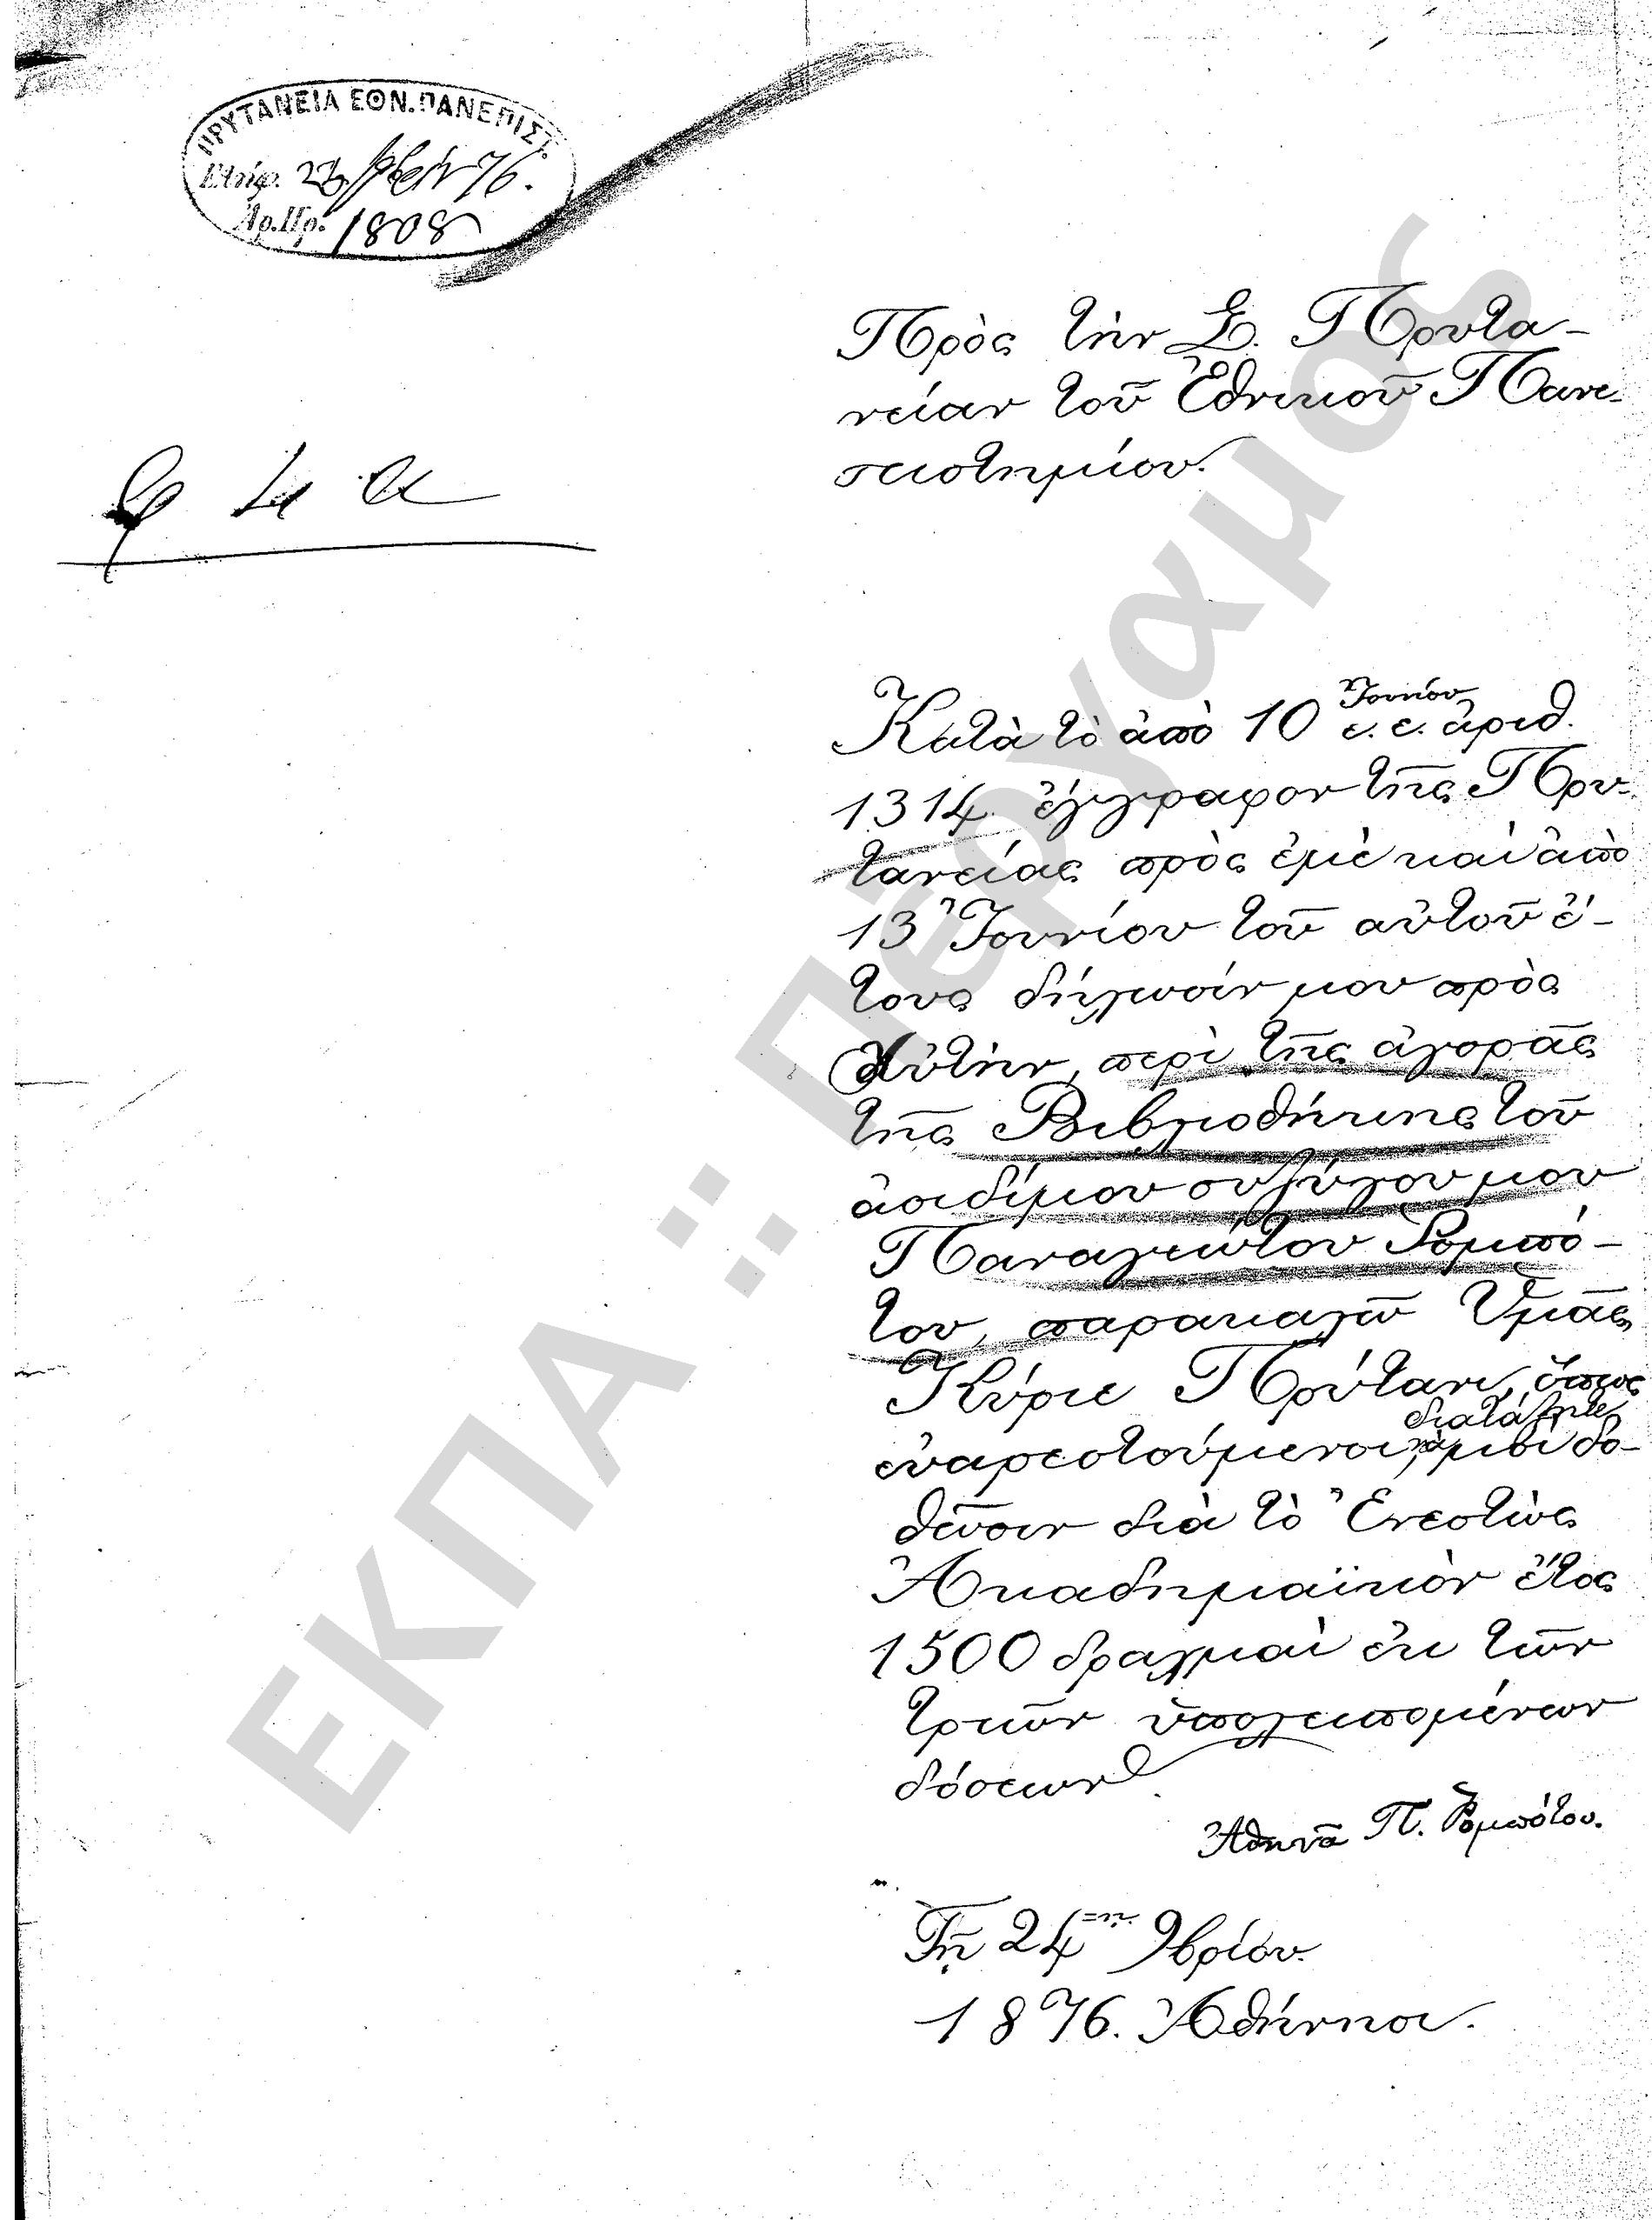 ΠΡΥΤΑΝΕΙΑ ΕΘΝ. ΠΑΝΕΠΙΣΤ.
Ἐλήφ. 76.
Ἀρ. Πρ. 1808
Πρὸς τὴν Σ. Πρυτα-
νείαν τοῦ Ἐθνικοῦ Πανε-
πιστημίου.
Κατὰ τὸ ἀπὸ 10 Ἰουνίου ἐ. ἔ. ἀριθ.
1314 ἔγγραφον τῆς Πρυ-
τανείας πρὸς ἐμὲ καὶ ἀπὸ
13 Ἰουνίου τοῦ αὐτοῦ ἔ-
τους δήλωσίν μου πρὸς
Αὐτὴν, περὶ τῆς ἀγορᾶς
τῆς Βιβλιοθήκης τοῦ
ἀοιδίμου συζύγου μου
Παναγιώτου Ῥομπό-
του, παρακαλῶ Ὑμᾶς
Κύριε Πρύτανι, ὅπως
εὐαρεστούμενοι, διατάξητε νὰ μοὶ δο-
θῶσιν διὰ τὸ Ἐνεστὼς
Ἀκαδημαϊκὸν ἔτος
1500 δραχμαὶ ἐκ τῶν
τριῶν ὑπολειπομένων
δόσεων.
Ἀθηνᾶ Π. Ῥομπότου.
Τῇ 24 9βρίου
1876. Ἀθήνησι.
ΕΚΠΑ :: Πέργαμος